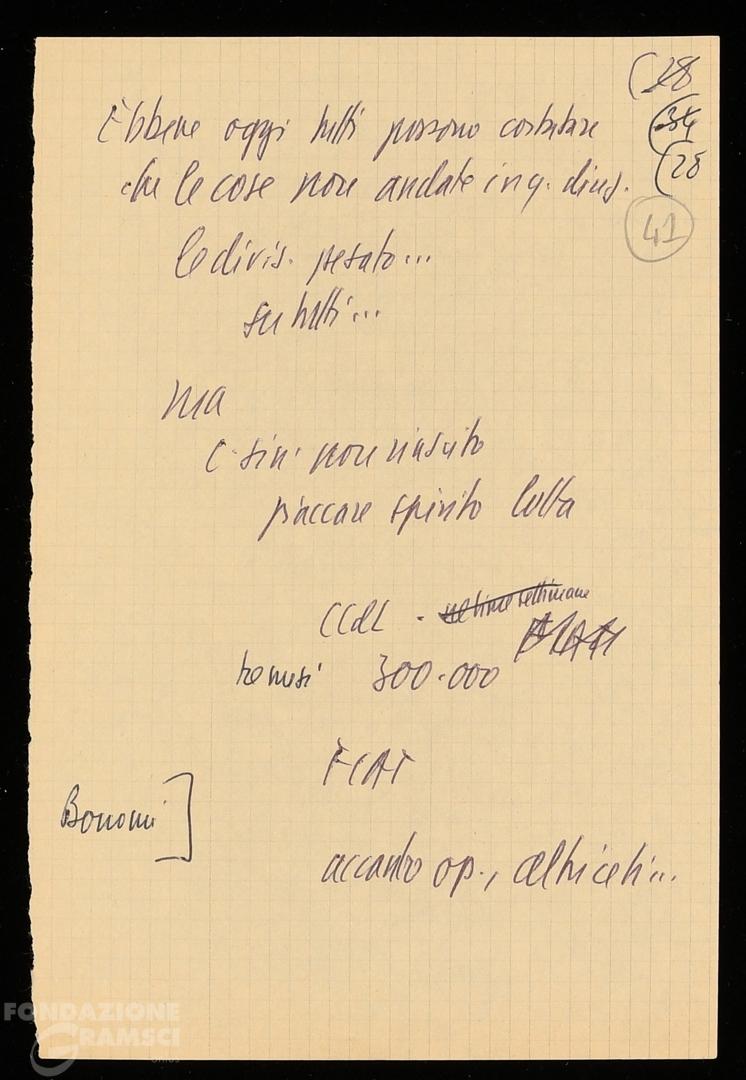 (28
(34
(28
41
Ebbene oggi tutti possono costatare
che le cose non andate in q. direz.
le divis. pesato...
su tutti...
ma
non riuscito
fiaccare spirito lotta
CCdL - ultime settimane
tre mesi 300.000
FIAT
Bonomi ]
accanto op., altri ceti...
FONDAZIONE
GRAMSCI
onlus